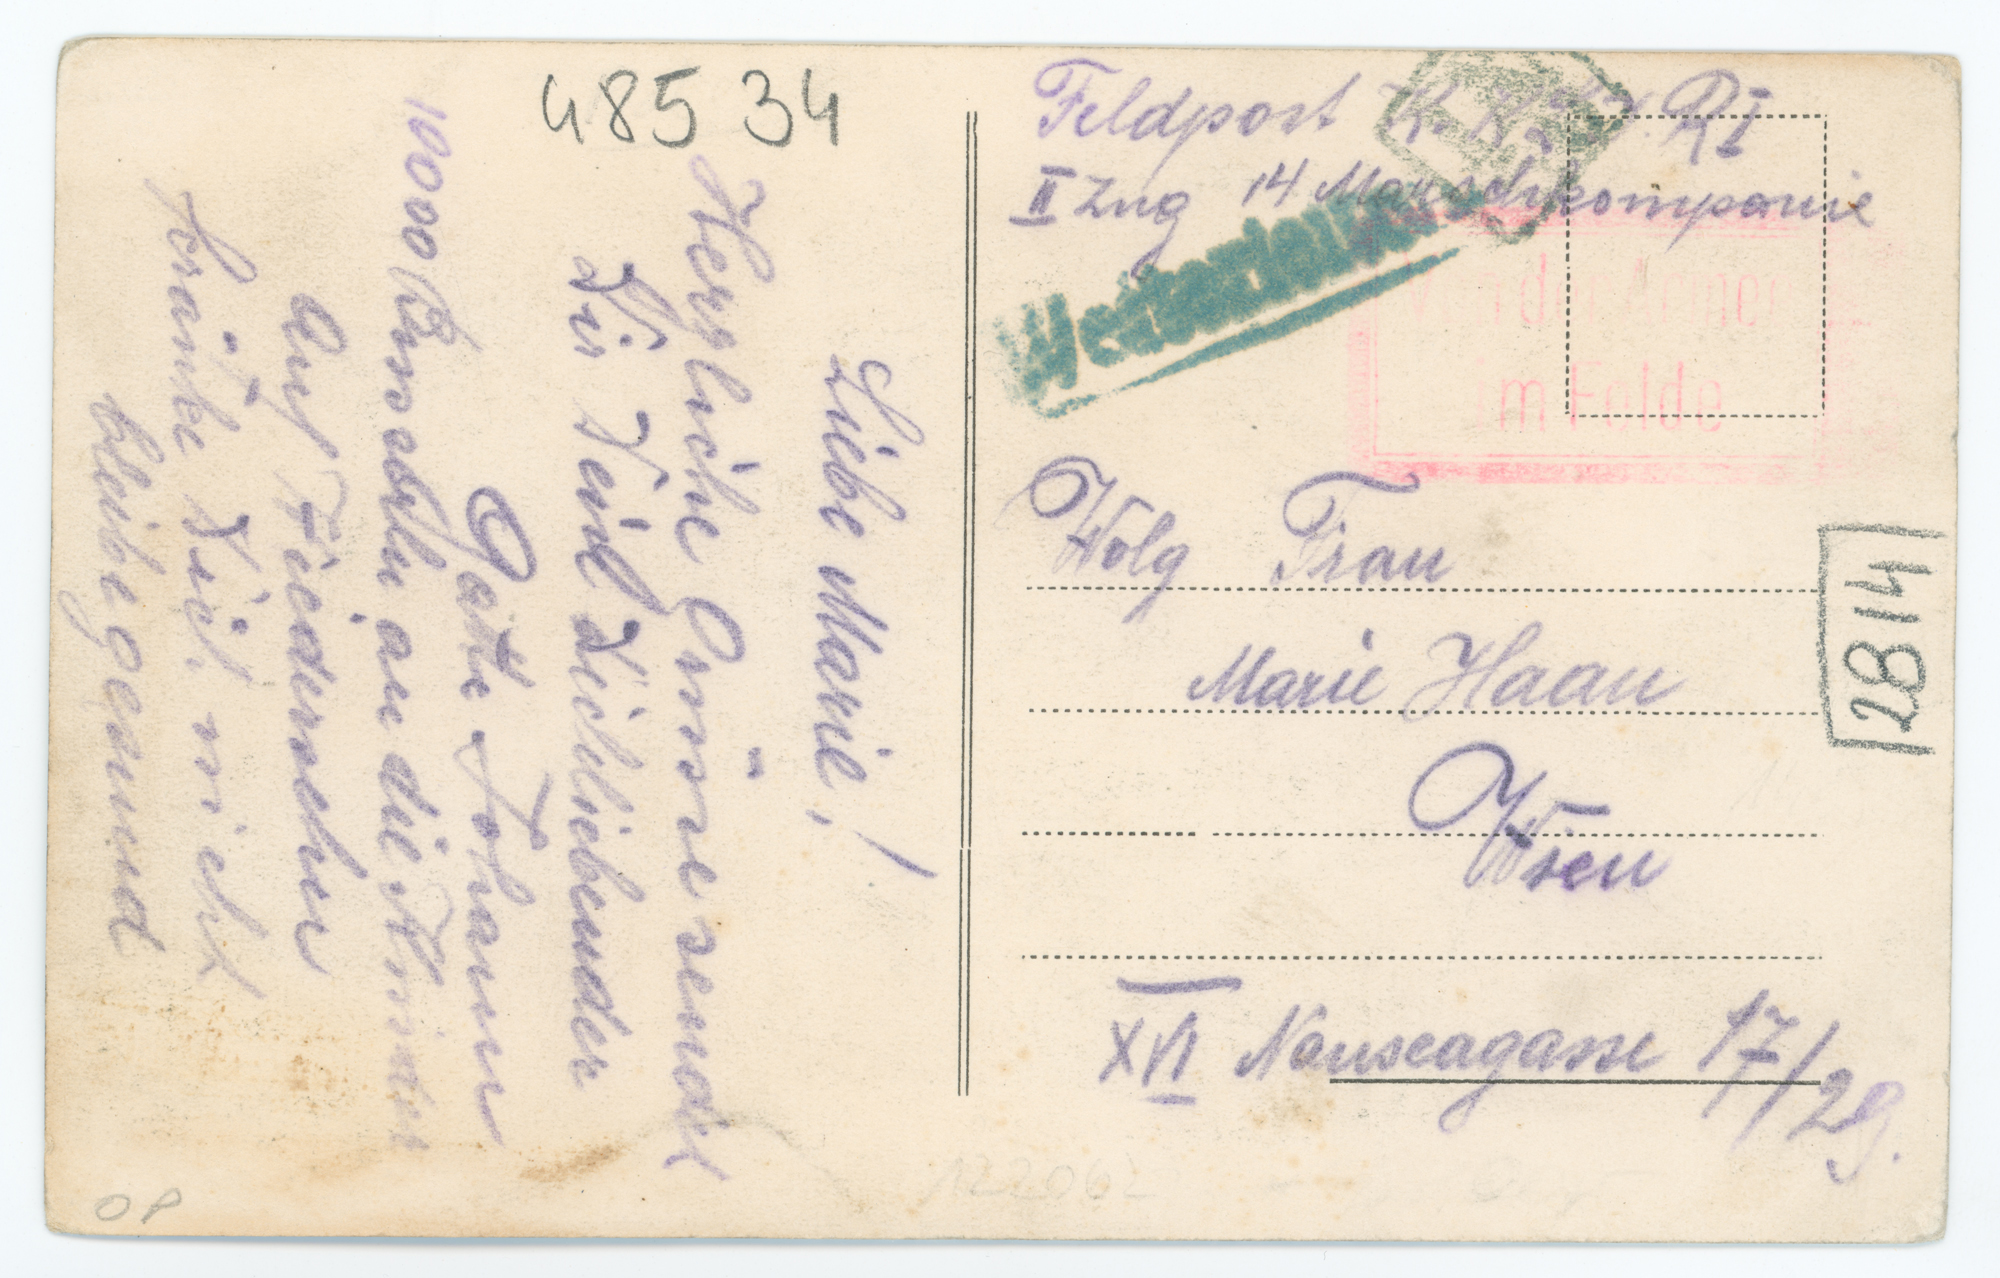 485 34
Liebe Marie!
Herzliche Grüsse sendet
Dir Dein Dichliebender
Gatte Johann
10000 Busserln an die Kinder
Auf Wiedersehen
kränke Dich nicht
bleibe gesund
Feldpost K. K. RI
II Zug 14 Marschkompanie
Von der Armee
im Felde
Wolg Frau
Marie Haan
Wien
XVI Nauseagasse 17/29.
2814
122062
OP